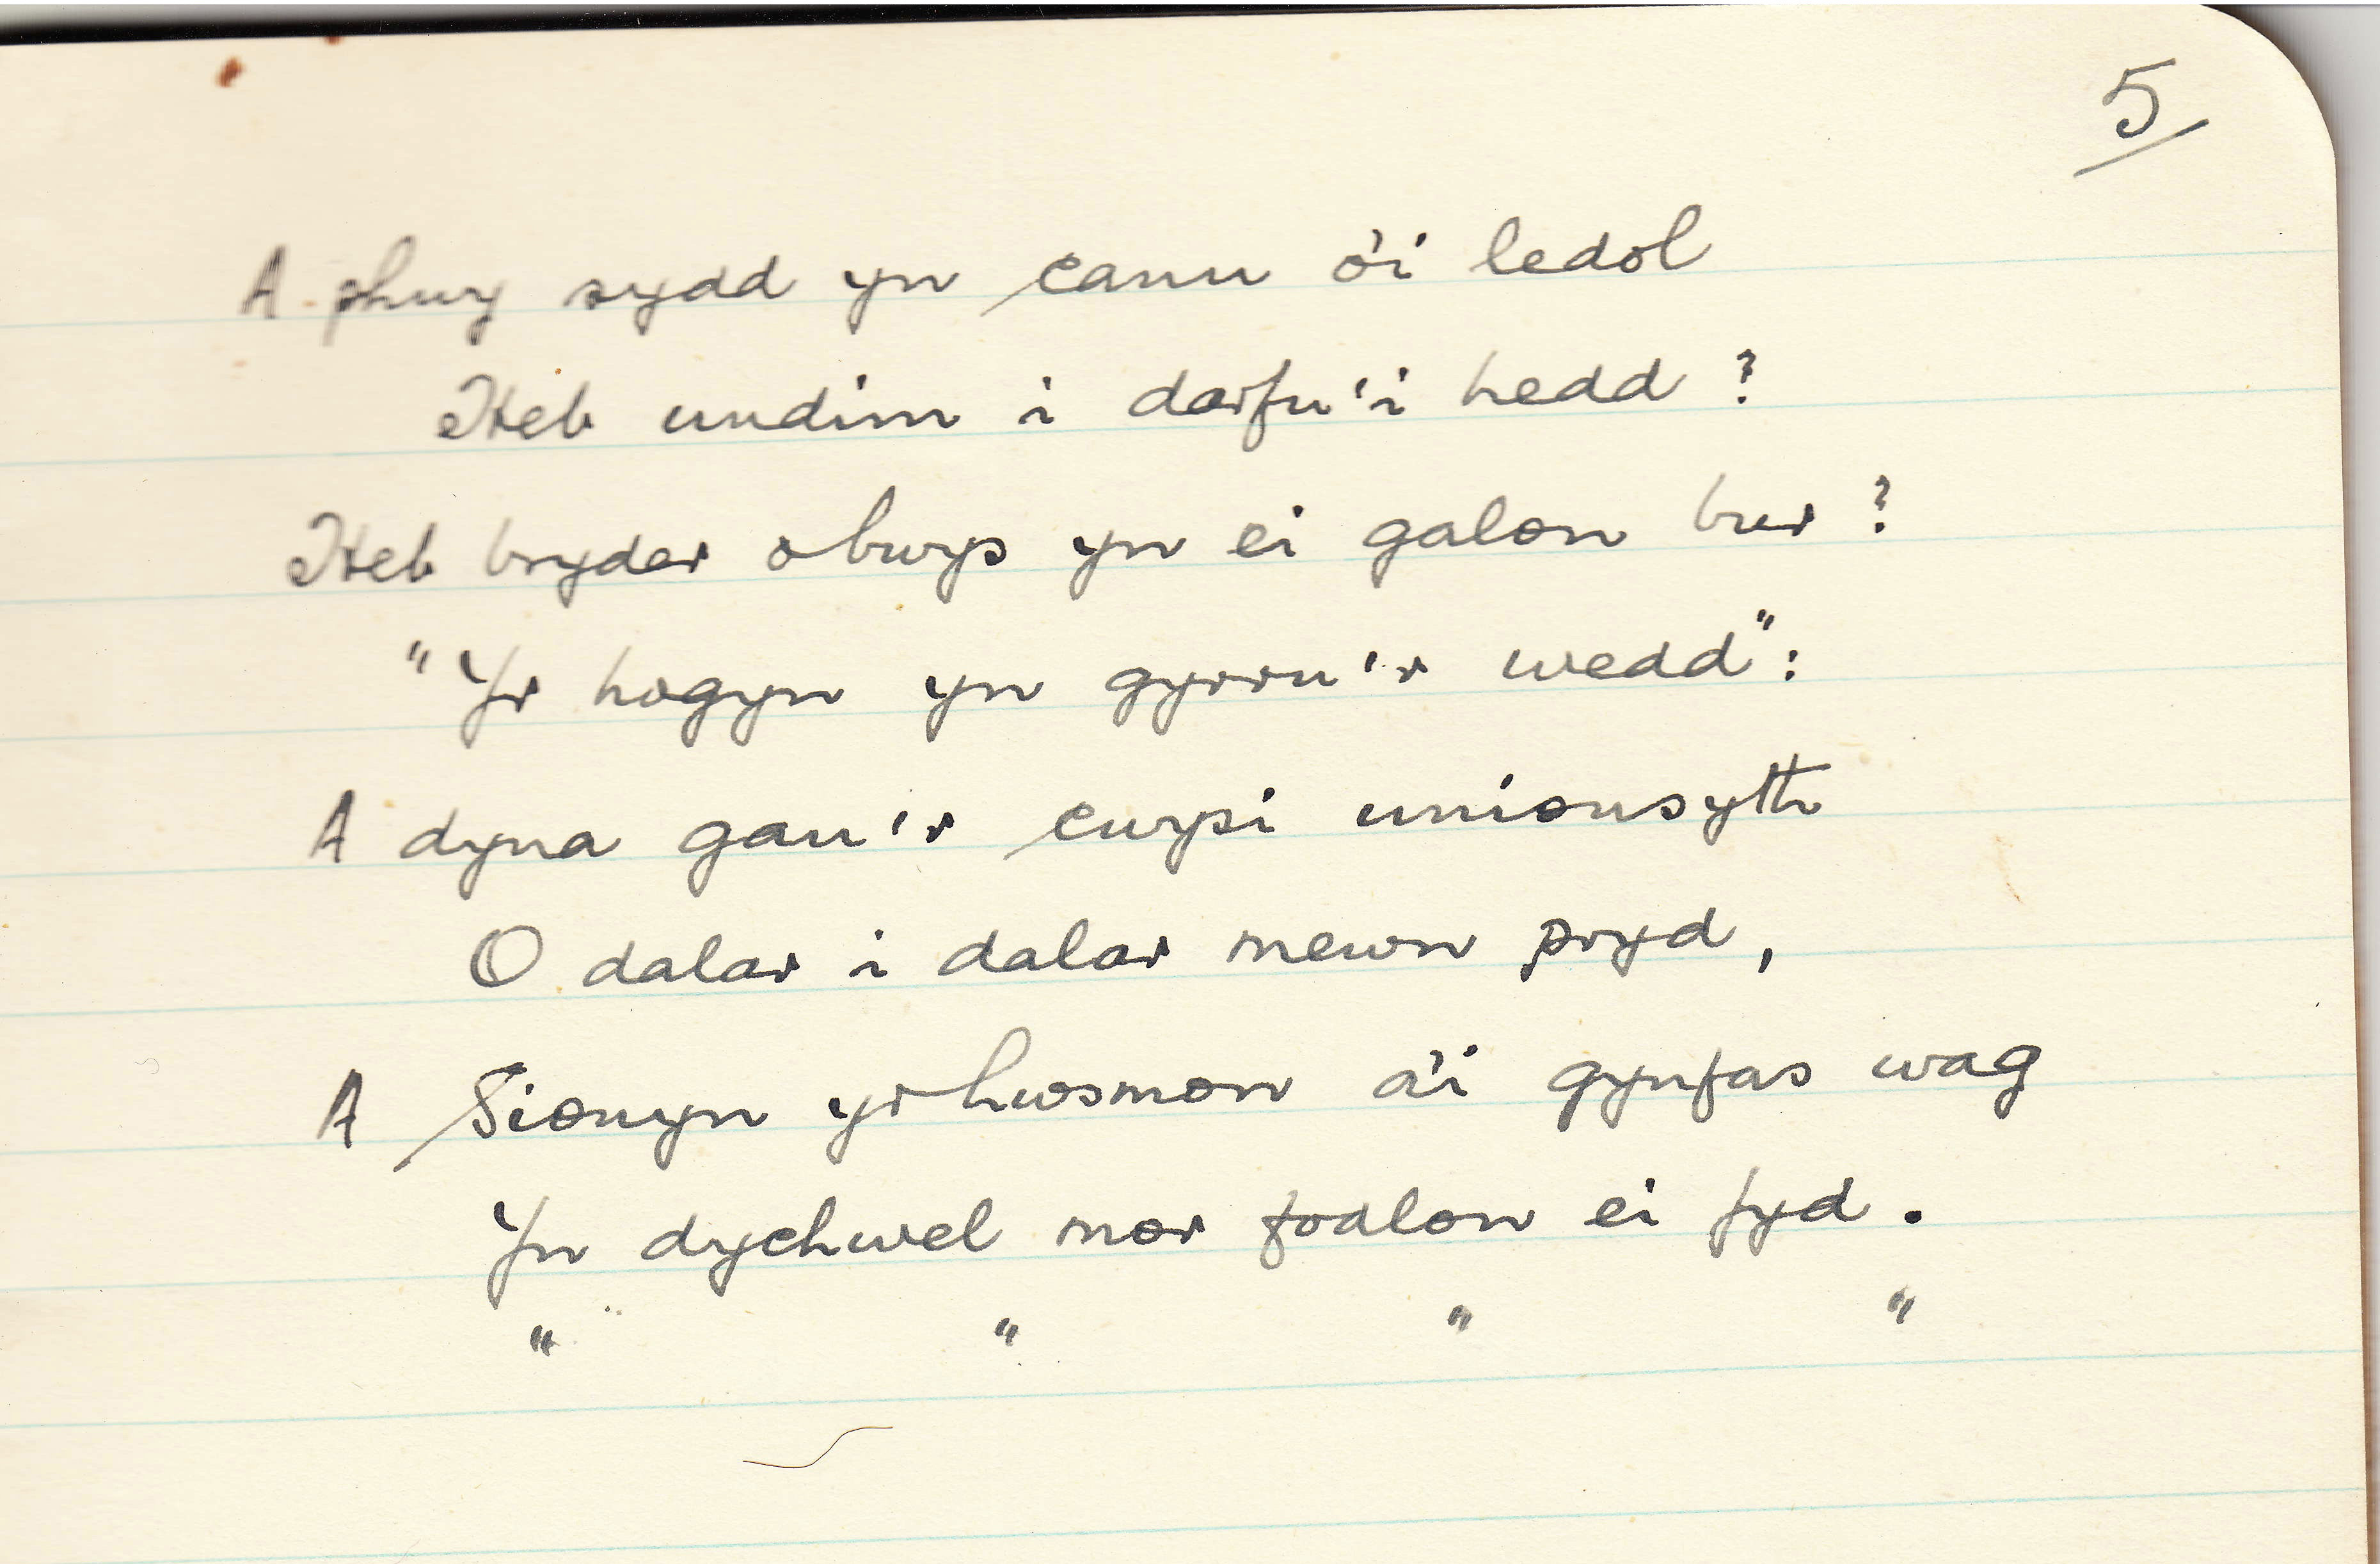 5
A phwy sydd yn canu o'i ledol
Heb undim i darfu'i hedd ?
Heb bryder o bwys yn ei galon bur ?
"Yr hogyn yn gyrru'r wedd":
A dyna gau'r cwysi unionsyth
O dalar i dalar mewn pryd,
A Sionyn yr hwsmon a'i gynfas wag
Yn dychwel mor fodlon ei fyd.
" " " "